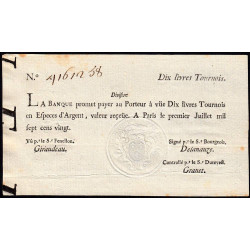 N.o 9161258 Dix livres Tournois.
Division
LA BANQUE promet payer au Porteur à vûe Dix livres Tournois
en Especes d'Argent, valeur reçeüe. A Paris le premier Juillet mil
sept cens vingt.
Vû p.r le S.r Fenellon. Signé p.r le S.r Bourgeois.
Giraudeau. Delanauze.
Controllé p.r le S.r Durevest.
Granet.